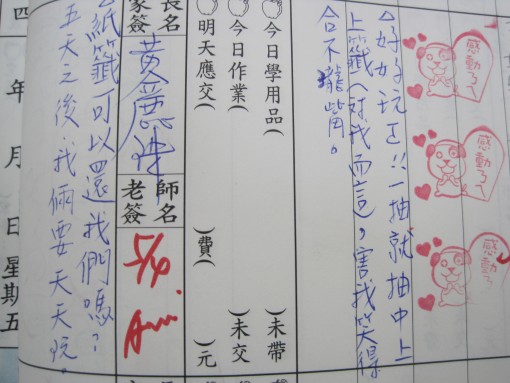 感動
感動
感動
好好玩ㄛ!!一抽就抽中上
上籤(對我而言),害我笑得
合不攏嘴。
今日學用品( )未帶
今日作業( )未交
明天應交( 費)( )元
長名
家簽
黃
師名
老簽
5/4
紙籤可以還我們嗎?
五天之後,我倆要天天
四 年 月 日 星期五